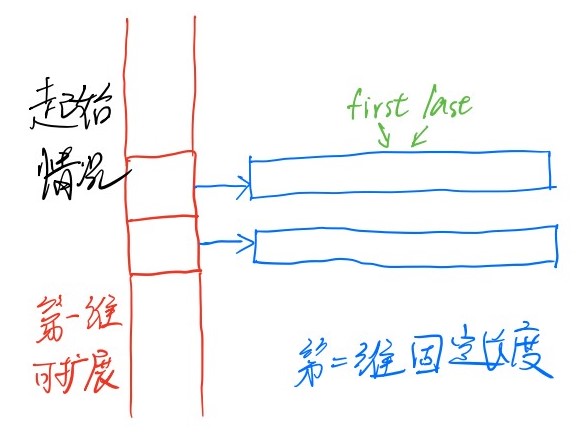 起始
情况
first last
第一维
可扩展
第二维固定长度